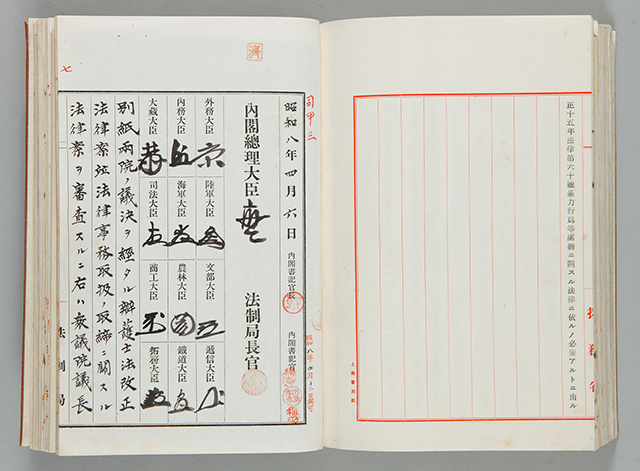 正十五年法律第六十號暴力行爲等處罰ニ關スル法律ニ依ルノ必要アルトニ由ル
司甲三
昭和八年四月六日
內閣書記官長
內閣書記官
內閣總理大臣
法制局長官
外務大臣
陸軍大臣
文部大臣
遞信大臣
內務大臣
海軍大臣
農林大臣
鐵道大臣
大藏大臣
司法大臣
商工大臣
拓務大臣
別紙兩院ノ議決ヲ經タル辯護士法改正
法律案竝法律事務取扱ノ取締ニ關スル
法律案ヲ審査スルニ右ハ衆議院議長
法制局
七